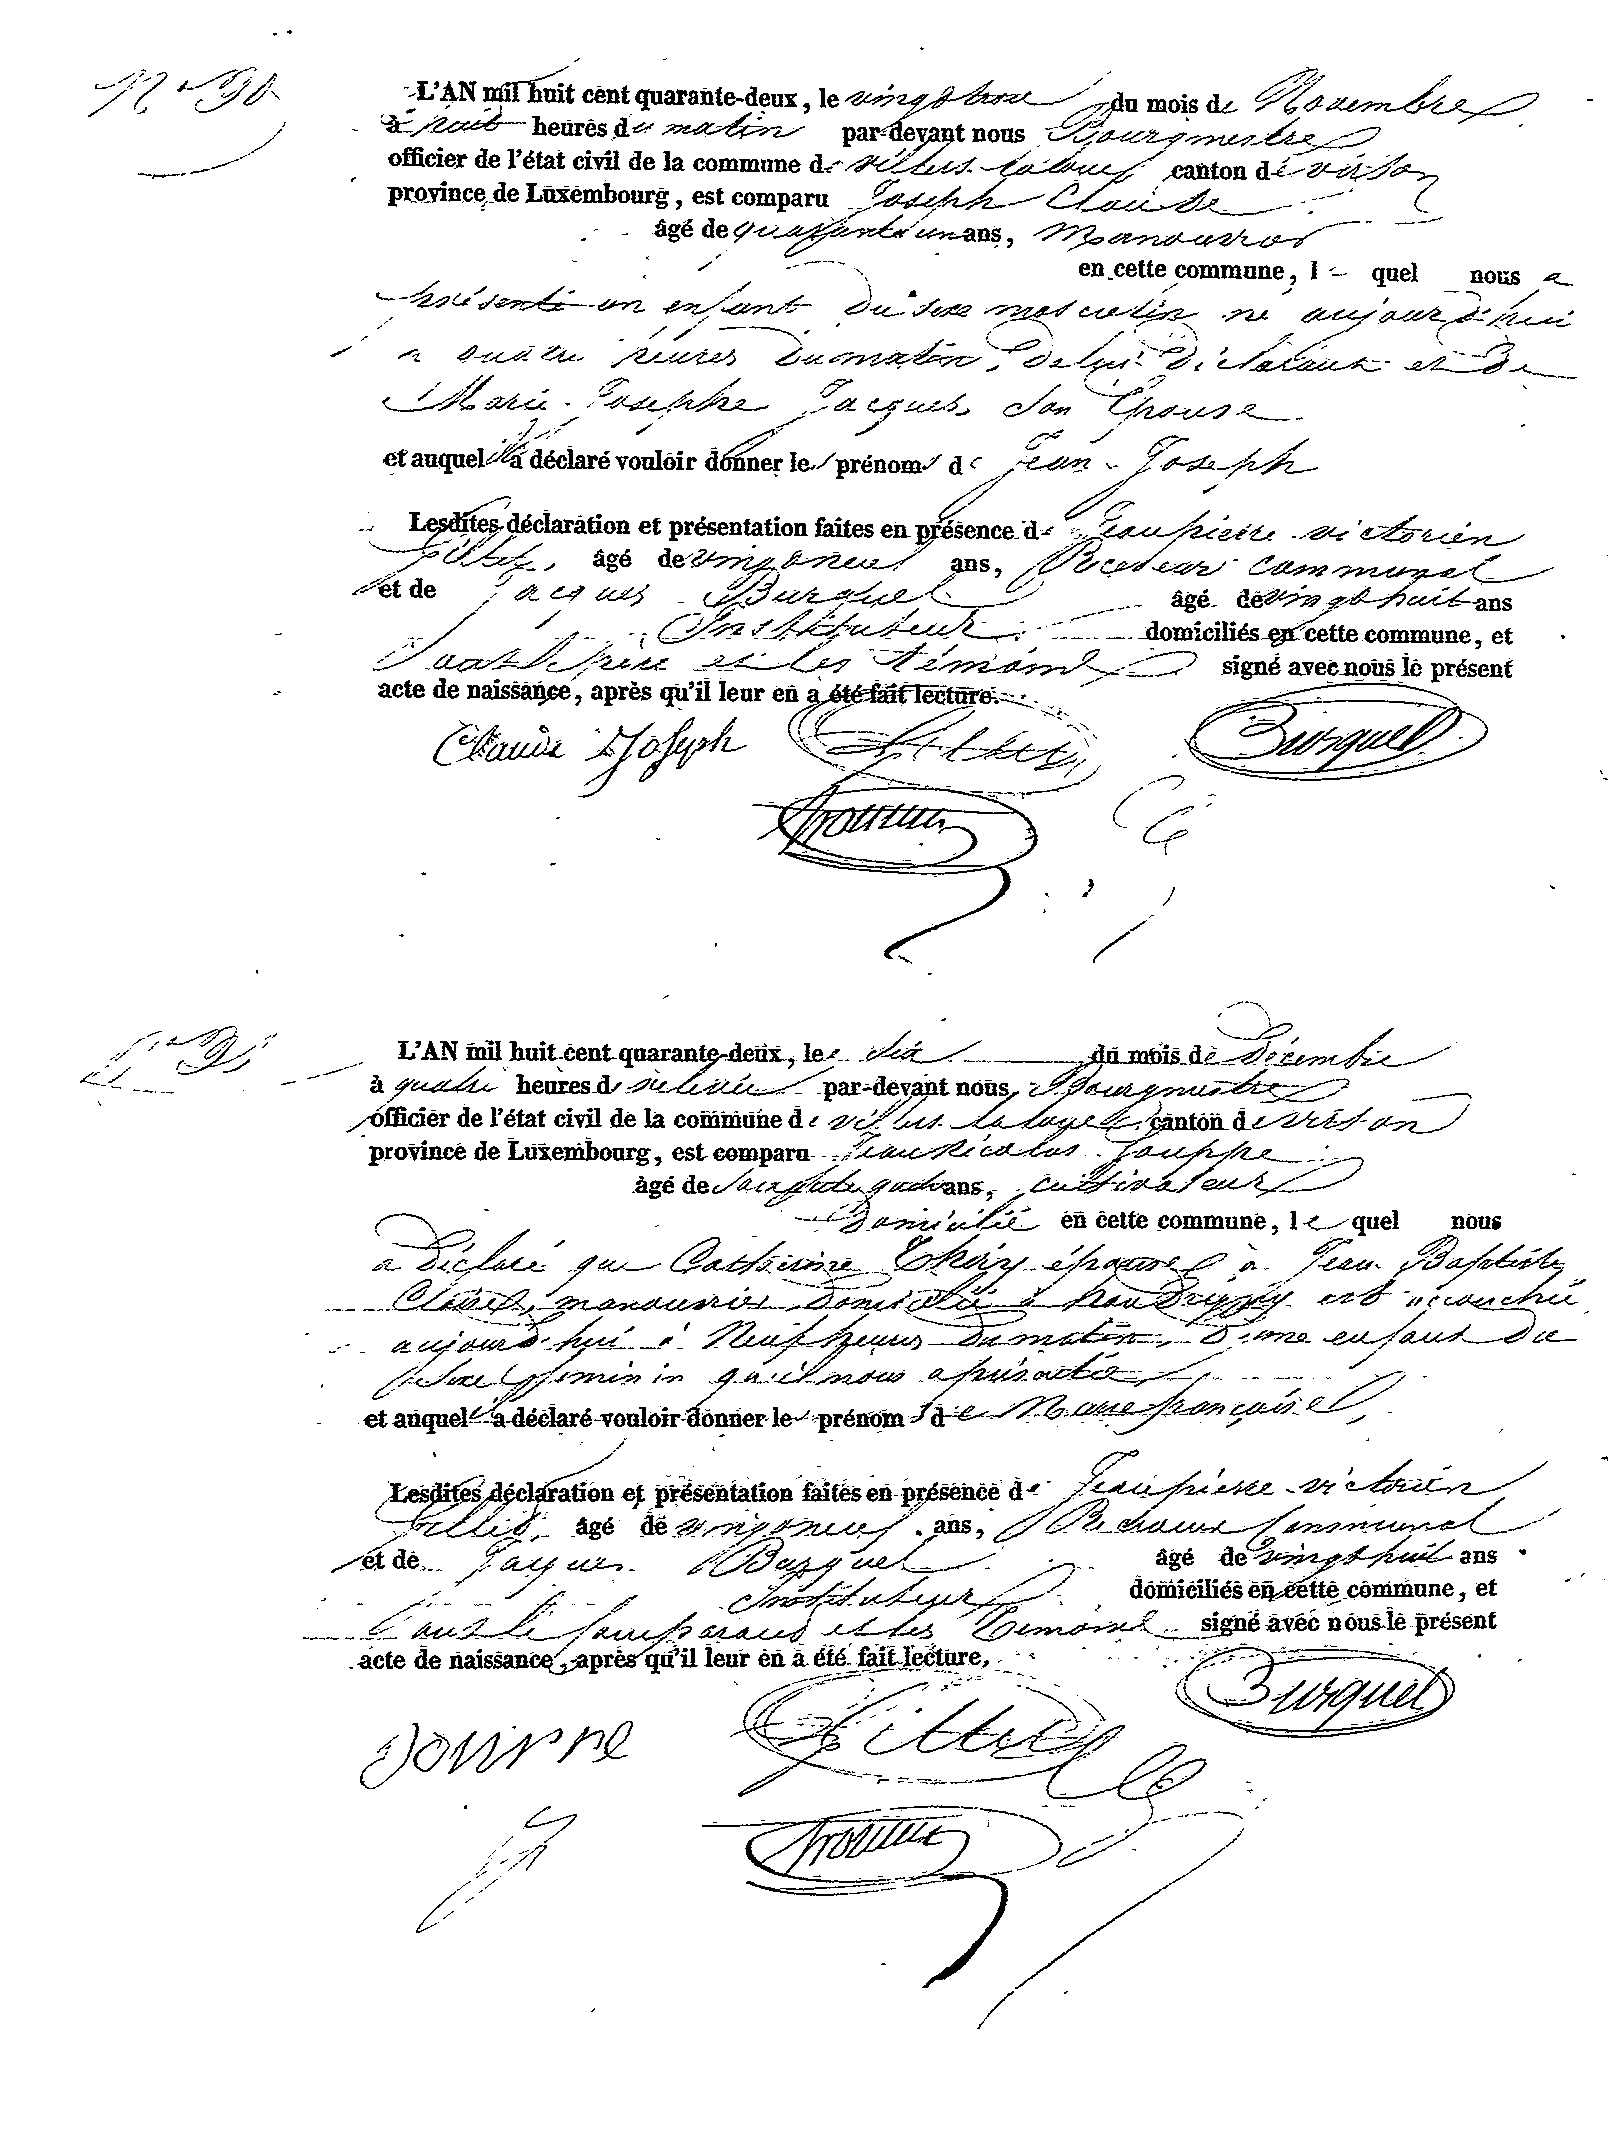 N° 90
L'AN mil huit cent quarante-deux, le vingt trois du mois de Novembre
à huit heures du matin par-devant nous Bourgmestre
officier de l'état civil de la commune de villers-laloue canton de virton
province de Luxembourg, est comparu Joseph Claude
âgé de quarante un ans, Manouvrier
en cette commune, le quel nous a
présenté un enfant du sexe masculin né aujourd'hui
a quatre heures du matin, de lui déclarant et de
Marie-Josephe Jacques son Epouse
et auquel il a déclaré vouloir donner les prénoms de Jean-Joseph
Lesdites déclaration et présentation faites en présence de Jeanpierre victorien
âgé de vingt neuf ans, Receveur communal
et de Jacques Burquel âgé de vingt huit ans
Instituteur domiciliés en cette commune, et
ont le père et les témoins signé avec nous le présent
acte de naissance, après qu'il leur en a été fait lecture.
Claude Joseph Burquel
L'AN mil huit cent quarante-deux, le dix du mois de Décembre
à quatre heures de relevée par-devant nous Bourgmestre
officier de l'état civil de la commune de villers-laloue canton de virton
province de Luxembourg, est comparu Jean Nicolas
âgé de soixante quatre ans, cultivateur
Domicilié en cette commune, le quel nous
a Déclaré que Catherine Thiry épouse à Jean Baptiste
manouvrier domicilié à est accouchée
aujourd'hui à Neuf heures du matin, d'une enfant du
sexe féminin qu'il nous a présenté
et auquel il a déclaré vouloir donner les prénoms de Marie françoise
Lesdites déclaration et présentation faites en présence de Jeanpierre victorien
âgé de vingt neuf ans, Receveur Communal
et de Jacques Burquel âgé de vingt huit ans
Instituteur domiciliés en cette commune, et
ont le Comparant et les Témoins signé avec nous le présent
acte de naissance, après qu'il leur en a été fait lecture,
Burquel